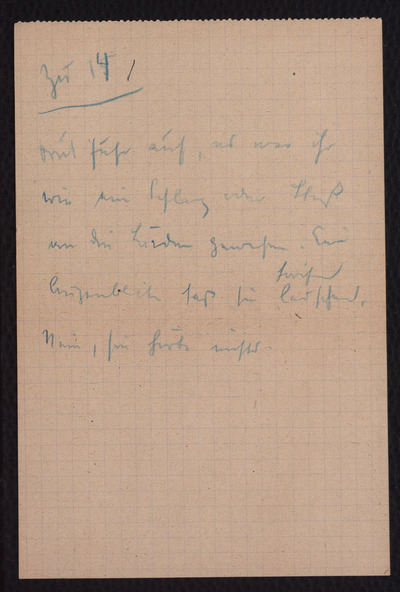 Zu 14 /
fuhr auf, es war ihr
wie ein Schlag oder Stoß
an die Läden gewesen. Ein
Augenblick saß sie lauschend.
Nein, sie hörte nichts.